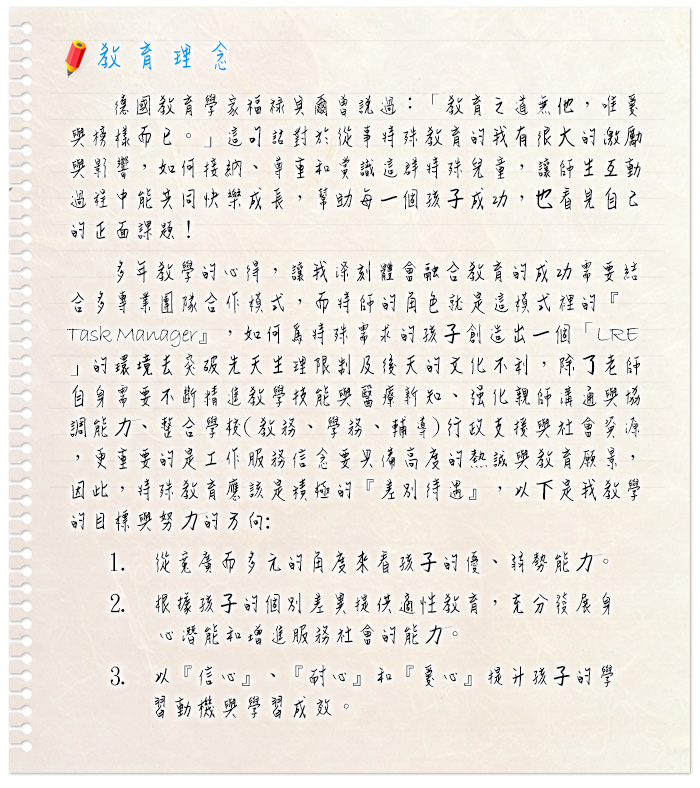 教育理念
德國教育學家福祿貝爾曾說過：「教育之道無他，唯愛
與榜樣而已。」這句話對於從事特殊教育的我有很大的激勵
與影響，如何接納、尊重和賞識這群特殊兒童，讓師生互動
過程中能共同快樂成長，幫助每一個孩子成功，也看見自己
的正面課題！
多年教學的心得，讓我深刻體會融合教育的成功需要結
合多專業團隊合作模式，而特師的角色就是這模式裡的『
Task Manager』，如何為特殊需求的孩子創造出一個「LRE
」的環境去突破先天生理限制及後天的文化不利，除了老師
自身需要不斷精進教學技能與醫療新知、強化親師溝通與協
調能力、整合學校(教務、學務、輔導)行政支援與社會資源
，更重要的是工作服務信念要具備高度的熱誠與教育願景，
因此，特殊教育應該是積極的『差別待遇』，以下是我教學
的目標與努力的方向:
1. 從寬廣而多元的角度來看孩子的優、弱勢能力。
2. 根據孩子的個別差異提供適性教育，充分發展身
心潛能和增進服務社會的能力。
3. 以『信心』、『耐心』和『愛心』提升孩子的學
習動機與學習成效。